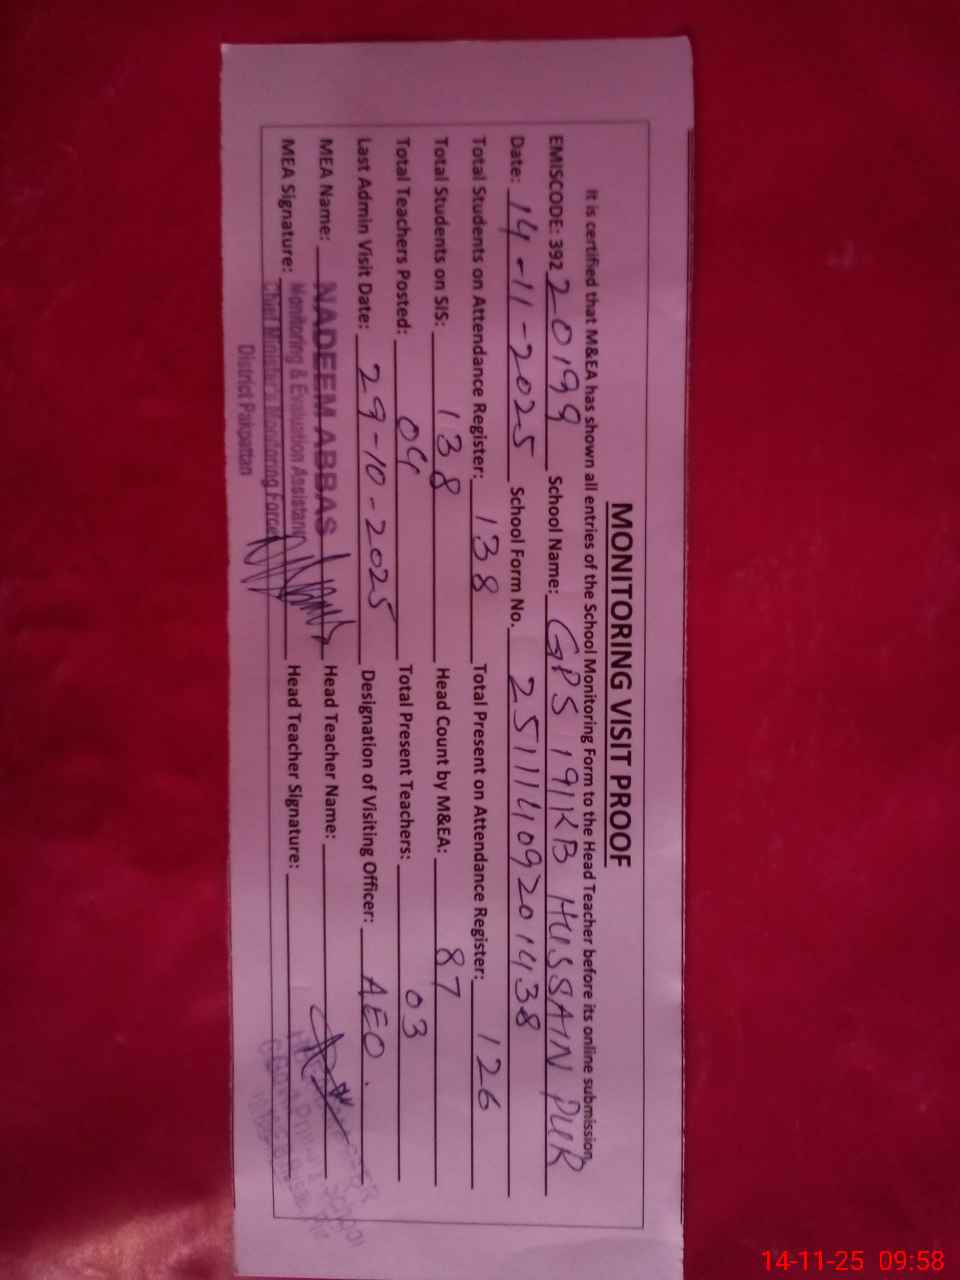 MONITORING VISIT PROOF
It is certified that M&EA has shown all entries of the School Monitoring Form to the Head Teacher before its online submission.
EMISCODE: 392 20199 School Name: GPS 191KB HUSSAIN PUR
Date: 14-11-2025 School Form No. 25111409201438
Total Students on Attendance Register: 138 Total Present on Attendance Register: 126
Total Students on SIS: 138 Head Count by M&EA: 87
Total Teachers Posted: 04 Total Present Teachers: 03
Last Admin Visit Date: 29-10-2025 Designation of Visiting Officer: AEO.
MEA Name: NADEEM ABBAS Head Teacher Name:
Monitoring & Evaluation Assistant
MEA Signature: Head Teacher Signature:
Chief Minister's Monitoring Force
District Pakpattan
14-11-25 09:58